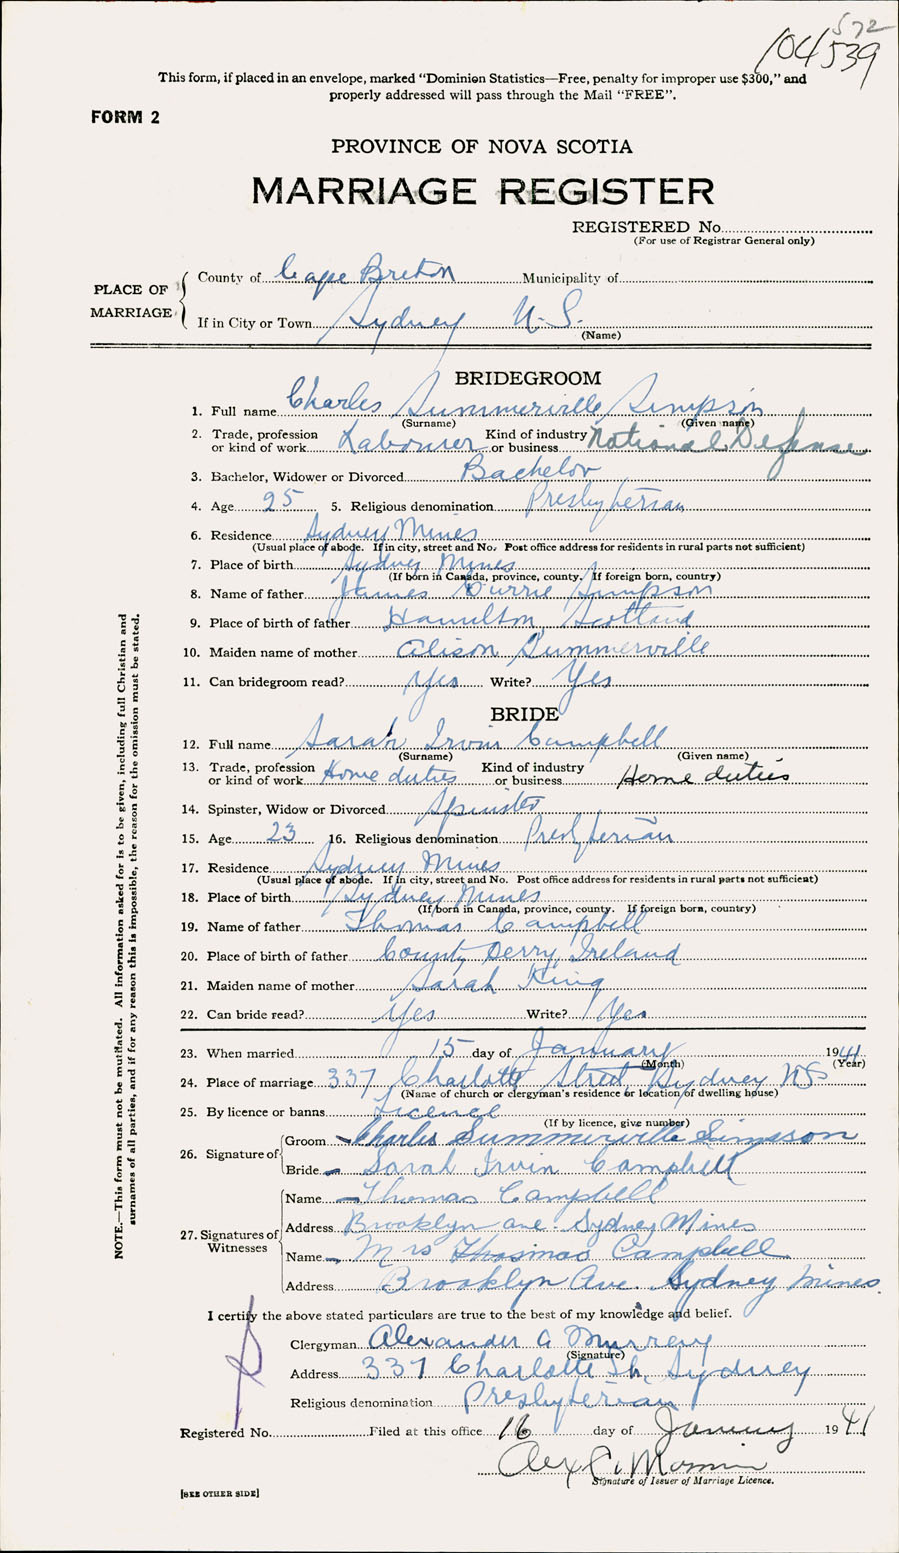 572
104539
This form, if placed in an envelope, marked “Dominion Statistics—Free, penalty for improper use $300,” and
properly addressed will pass through the Mail “FREE”.
FORM 2
PROVINCE OF NOVA SCOTIA
MARRIAGE REGISTER
REGISTERED No.
(For use of Registrar General only)
PLACE OF MARRIAGE
County of Cape Breton Municipality of
If in City or Town Sydney N.S.
(Name)
BRIDEGROOM
1. Full name Charles Summerville Simpson
(Surname) (Given name)
2. Trade, profession or kind of work Labourer Kind of industry or business National Defense
3. Bachelor, Widower or Divorced Bachelor
4. Age 25 5. Religious denomination Presbyterian
6. Residence Sydney Mines
(Usual place of abode. If in city, street and No. Post office address for residents in rural parts not sufficient)
7. Place of birth Sydney Mines
(If born in Canada, province, county. If foreign born, country)
8. Name of father James Currie Simpson
9. Place of birth of father Hamilton Scotland
10. Maiden name of mother Alison Summerville
11. Can bridegroom read? Yes Write? Yes
BRIDE
12. Full name Sarah Irvin Campbell
(Surname) (Given name)
13. Trade, profession or kind of work Home duties Kind of industry or business Home duties
14. Spinster, Widow or Divorced Spinster
15. Age 23 16. Religious denomination Presbyterian
17. Residence Sydney Mines
(Usual place of abode. If in city, street and No. Post office address for residents in rural parts not sufficient)
18. Place of birth Sydney Mines
(If born in Canada, province, county. If foreign born, country)
19. Name of father Thomas Campbell
20. Place of birth of father County Derry, Ireland
21. Maiden name of mother Sarah King
22. Can bride read? Yes Write? Yes
23. When married 15 day of January 1941
(Month) (Year)
24. Place of marriage 337 Charlotte Street, Sydney NS
(Name of church or clergyman's residence or location of dwelling house)
25. By licence or banns Licence
(If by licence, give number)
26. Signature of
Groom Charles Summerville Simpson
Bride Sarah Irvin Campbell
27. Signatures of Witnesses
Name Thomas Campbell
Address Brooklyn ave. Sydney Mines
Name Mrs Thosmas Campbell
Address Brooklyn Ave. Sydney Mines.
I certify the above stated particulars are true to the best of my knowledge and belief.
Clergyman Alexander A Murray
(Signature)
Address 337 Charlotte St, Sydney
Religious denomination Presbyterian
Registered No. Filed at this office 16 day of January 1941
Alex C.
Signature of Issuer of Marriage Licence.
[SEE OTHER SIDE]
NOTE.—This form must not be mutilated. All information asked for is to be given, including full Christian and
surnames of all parties, and if for any reason this is impossible, the reason for the omission must be stated.